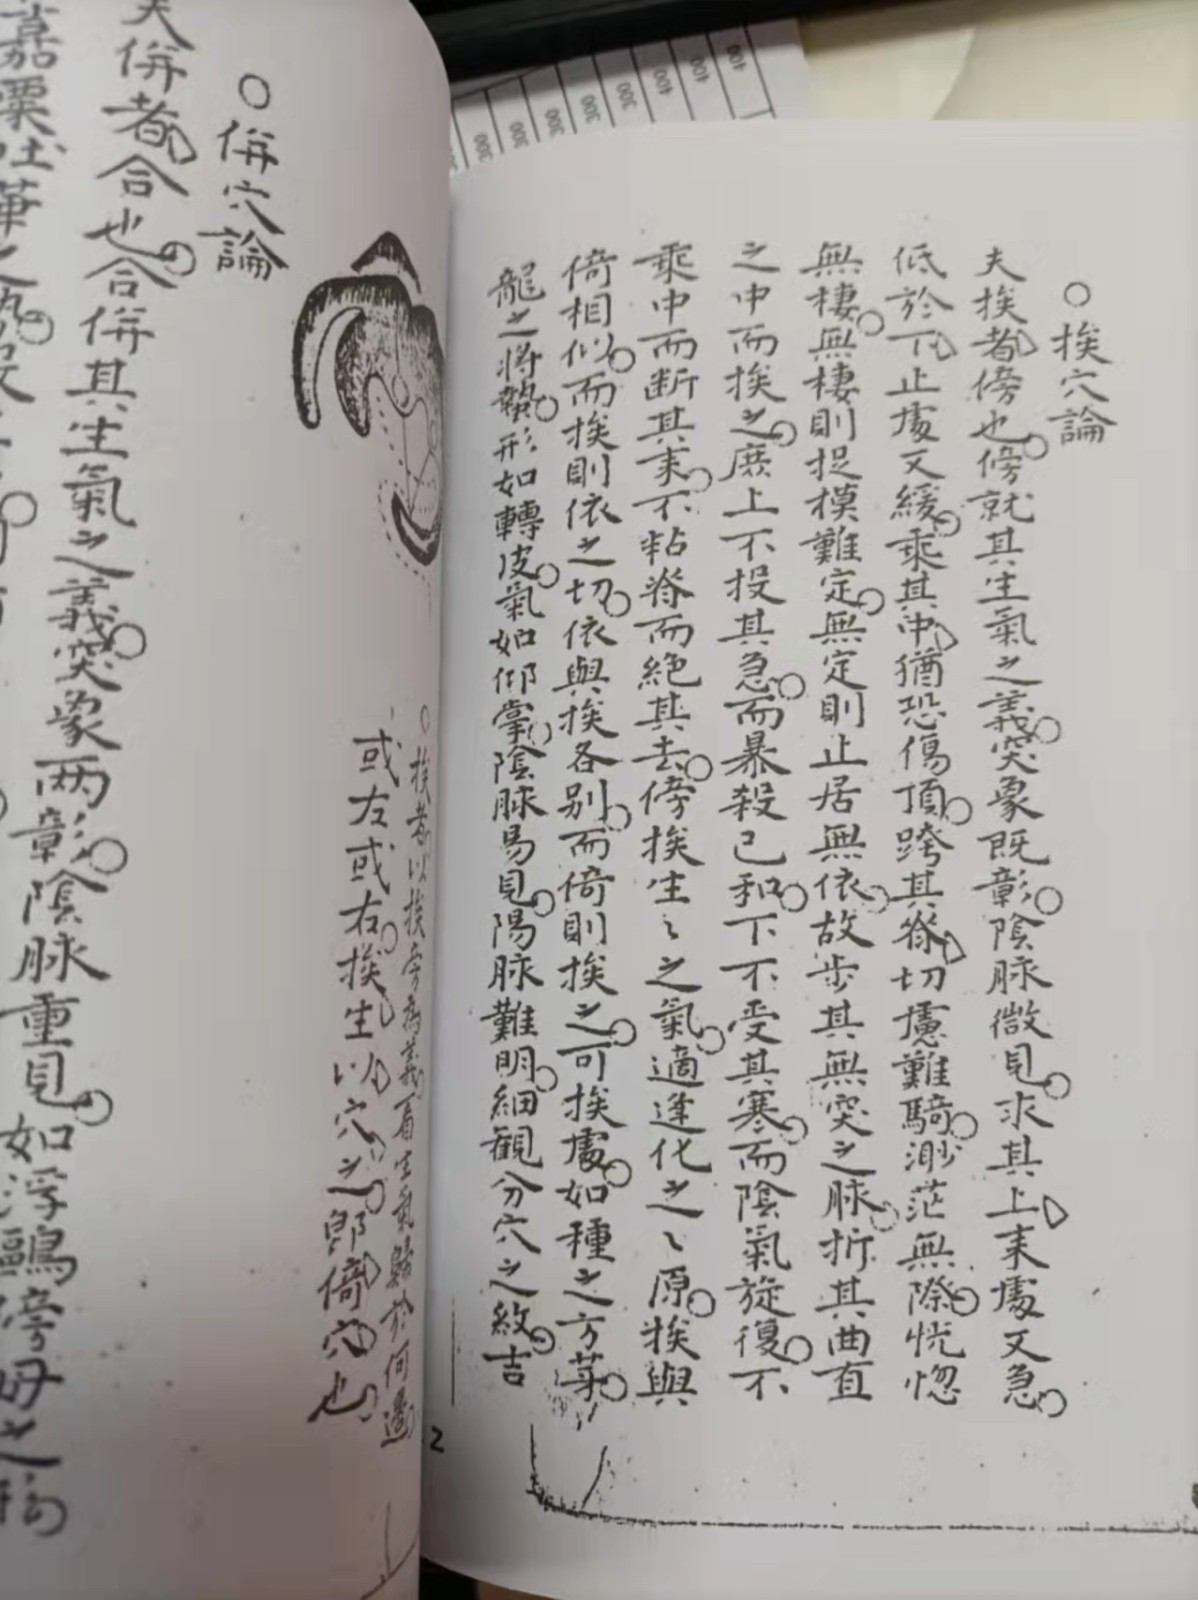 挨穴論
夫挨者傍也傍就其生氣之義突象既彰陰脉微見求其上来處又急
低於下止處又緩乘其中猶恐傷頂跨其脊切慮難騎渺茫無際恍惚
無棲無棲則捉模難定無定則止居無依故步其無突之脉折其曲直
之中而挨之庶上不投其急而暴殺已和下不受其寒而陰氣旋復不
乘中而断其来不粘脊而絕其去傍挨生〻之氣適逢化之〻原挨與
倚相似而挨則依之切依與挨各别而倚則挨之可挨處如種之方芽
龍之將蟄形如轉皮氣如仰掌陰脉易見陽脉難明細觀分穴之紋吉
挨者以挨旁為義看生氣歸於何邊
或左或右挨生以穴之即倚穴也
併穴論
夫併者合也合併其生氣之義突象两彰陰脉重見如浮鷗傍母之
嘉粟吐華之
400
400
400
300
300
300
300
300
2